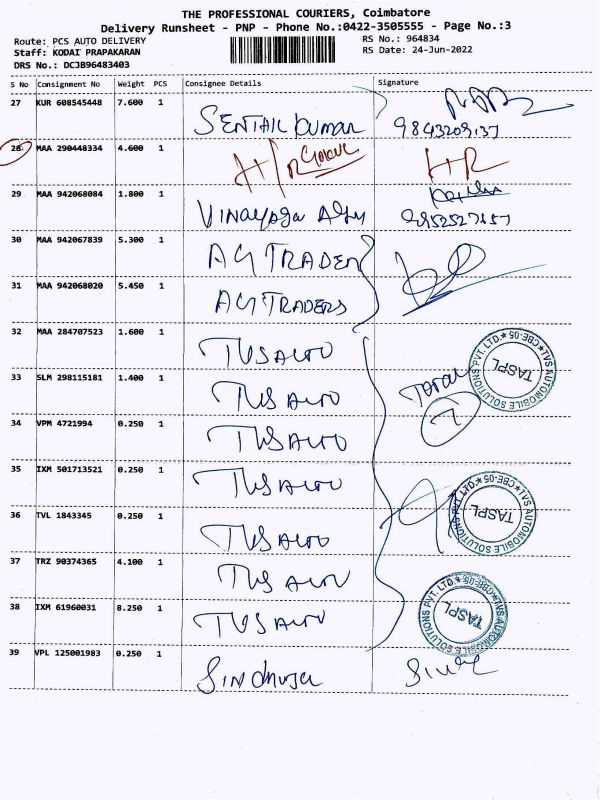 THE PROFESSIONAL COURIERS, Coimbatore
Delivery Runsheet - PNP - Phone No.:0422-3505555 - Page No.:3
Route: PCS AUTO DELIVERY RS No.: 964834
Staff: KODAI PRAPAKARAN RS Date: 24-Jun-2022
DRS No.: DCJB96483403
S No Consignment No Weight PCS Consignee Details Signature
27 KUR 608545448 7.600 1
SENTHIL KUMAR 9843209137
28 MAA 290448334 4.600 1
29 MAA 942068084 1.800 1
VINAYAGA
30 MAA 942067839 5.300 1
AG TRADER
31 MAA 942068020 5.450 1
AG TRADERS
32 MAA 284707523 1.600 1
TVS AUTO
33 SLM 298115181 1.400 1
TVS AUTO
Total 7
34 VPM 4721994 0.250 1
TVS AUTO
35 IXM 501713521 0.250 1
TVS AUTO
36 TVL 1843345 0.250 1
TVS AUTO
37 TRZ 90374365 4.100 1
TVS AUTO
38 IXM 61960031 8.250 1
TVS AUTO
39 VPL 125001983 0.250 1
Sindhuja
TVS AUTOMOBILE SOLUTIONS PVT. LTD. CBE-05
TASPL
TVS AUTOMOBILE SOLUTIONS PVT. LTD. CBE-05
TASPL
TVS AUTOMOBILE SOLUTIONS PVT. LTD. CBE-05
TASPL